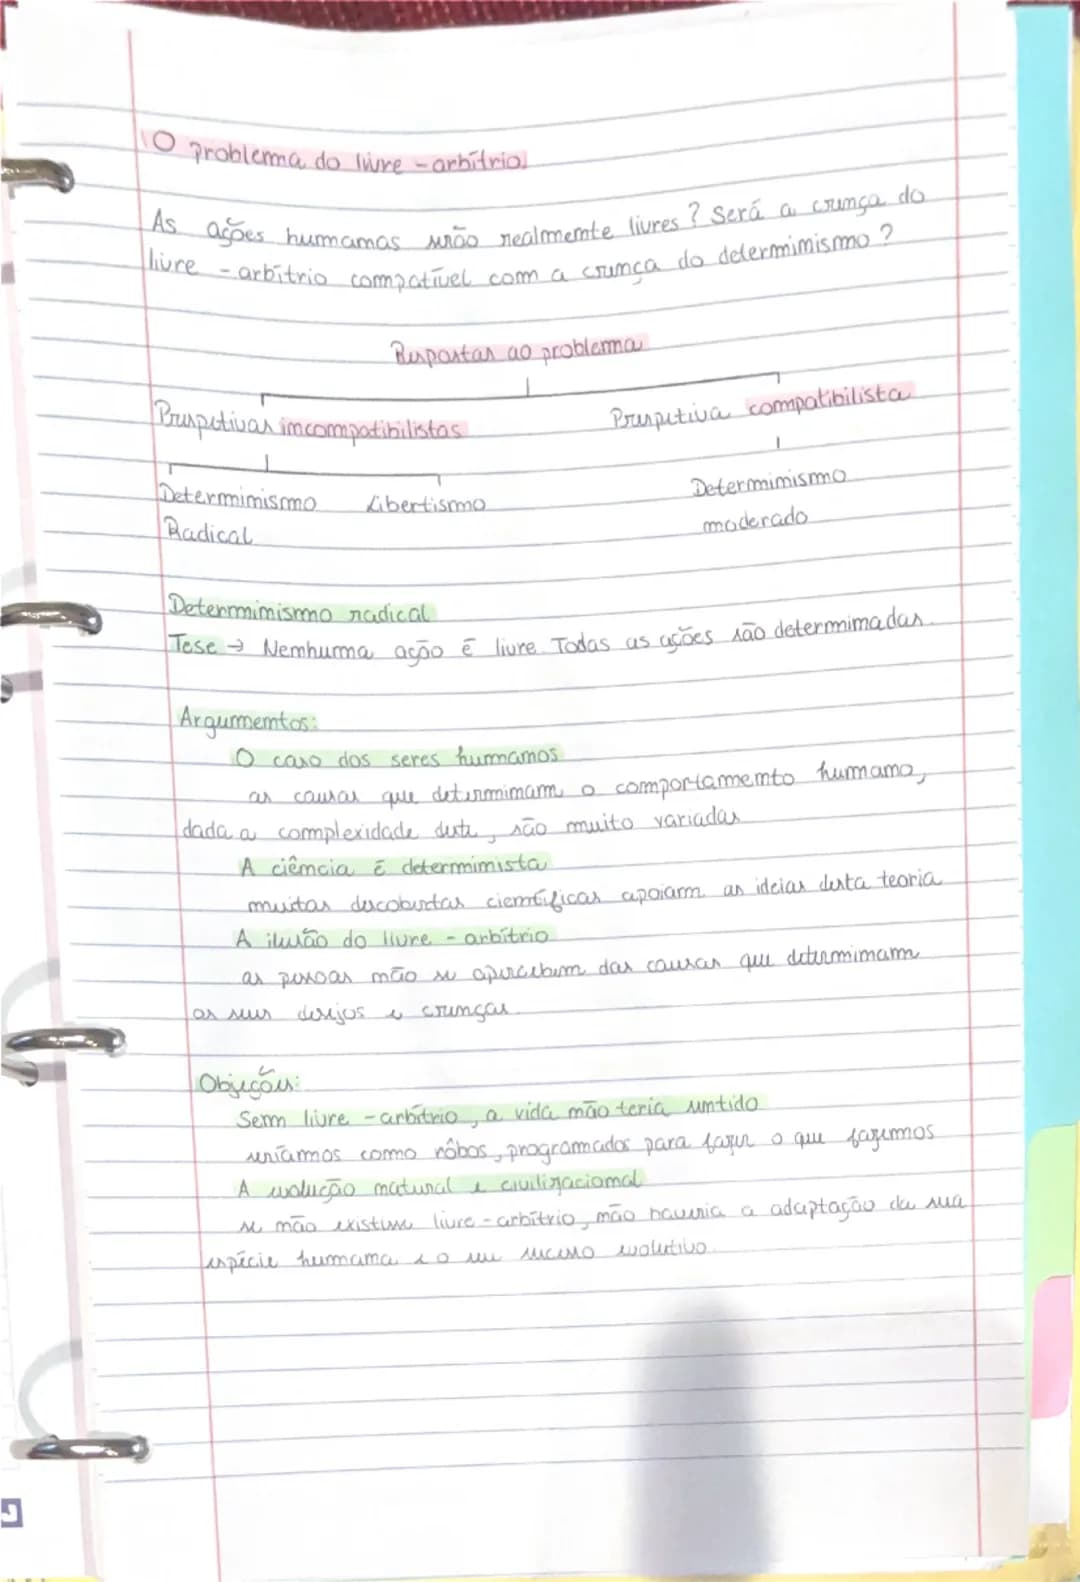 O problema do livre-arbítrio.
As ações humanas serão realmente livres? Será a crença do
livre-arbítrio compatível com a crença do determinismo?
Respostas ao problema
Prespetivas incompatibilistas
Prespetiva compatibilista
Determinismo Libertismo
Radical
Determinismo
moderado
Determinismo radical
Tese → Nenhuma ação é livre. Todas as ações são determinadas.
Argumentos:
O caso dos seres humanos
as causas que determinam o comportamento humano,
dada a complexidade deste, são muito variadas
A ciência é determinista
muitas descobertas científicas apoiam as ideias desta teoria
A ilusão do livre-arbítrio
as pessoas não se apercebem das causas que determinam
os seus desejos e crenças.
Objeções:
Sem livre-arbítrio, a vida não teria sentido
seríamos como rôbos, programados para fazer o que fazemos
A evolução natural e civilizacional
se não existisse livre-arbítrio, não haveria a adaptação da sua
espécie humana e o seu sucesso evolutivo.